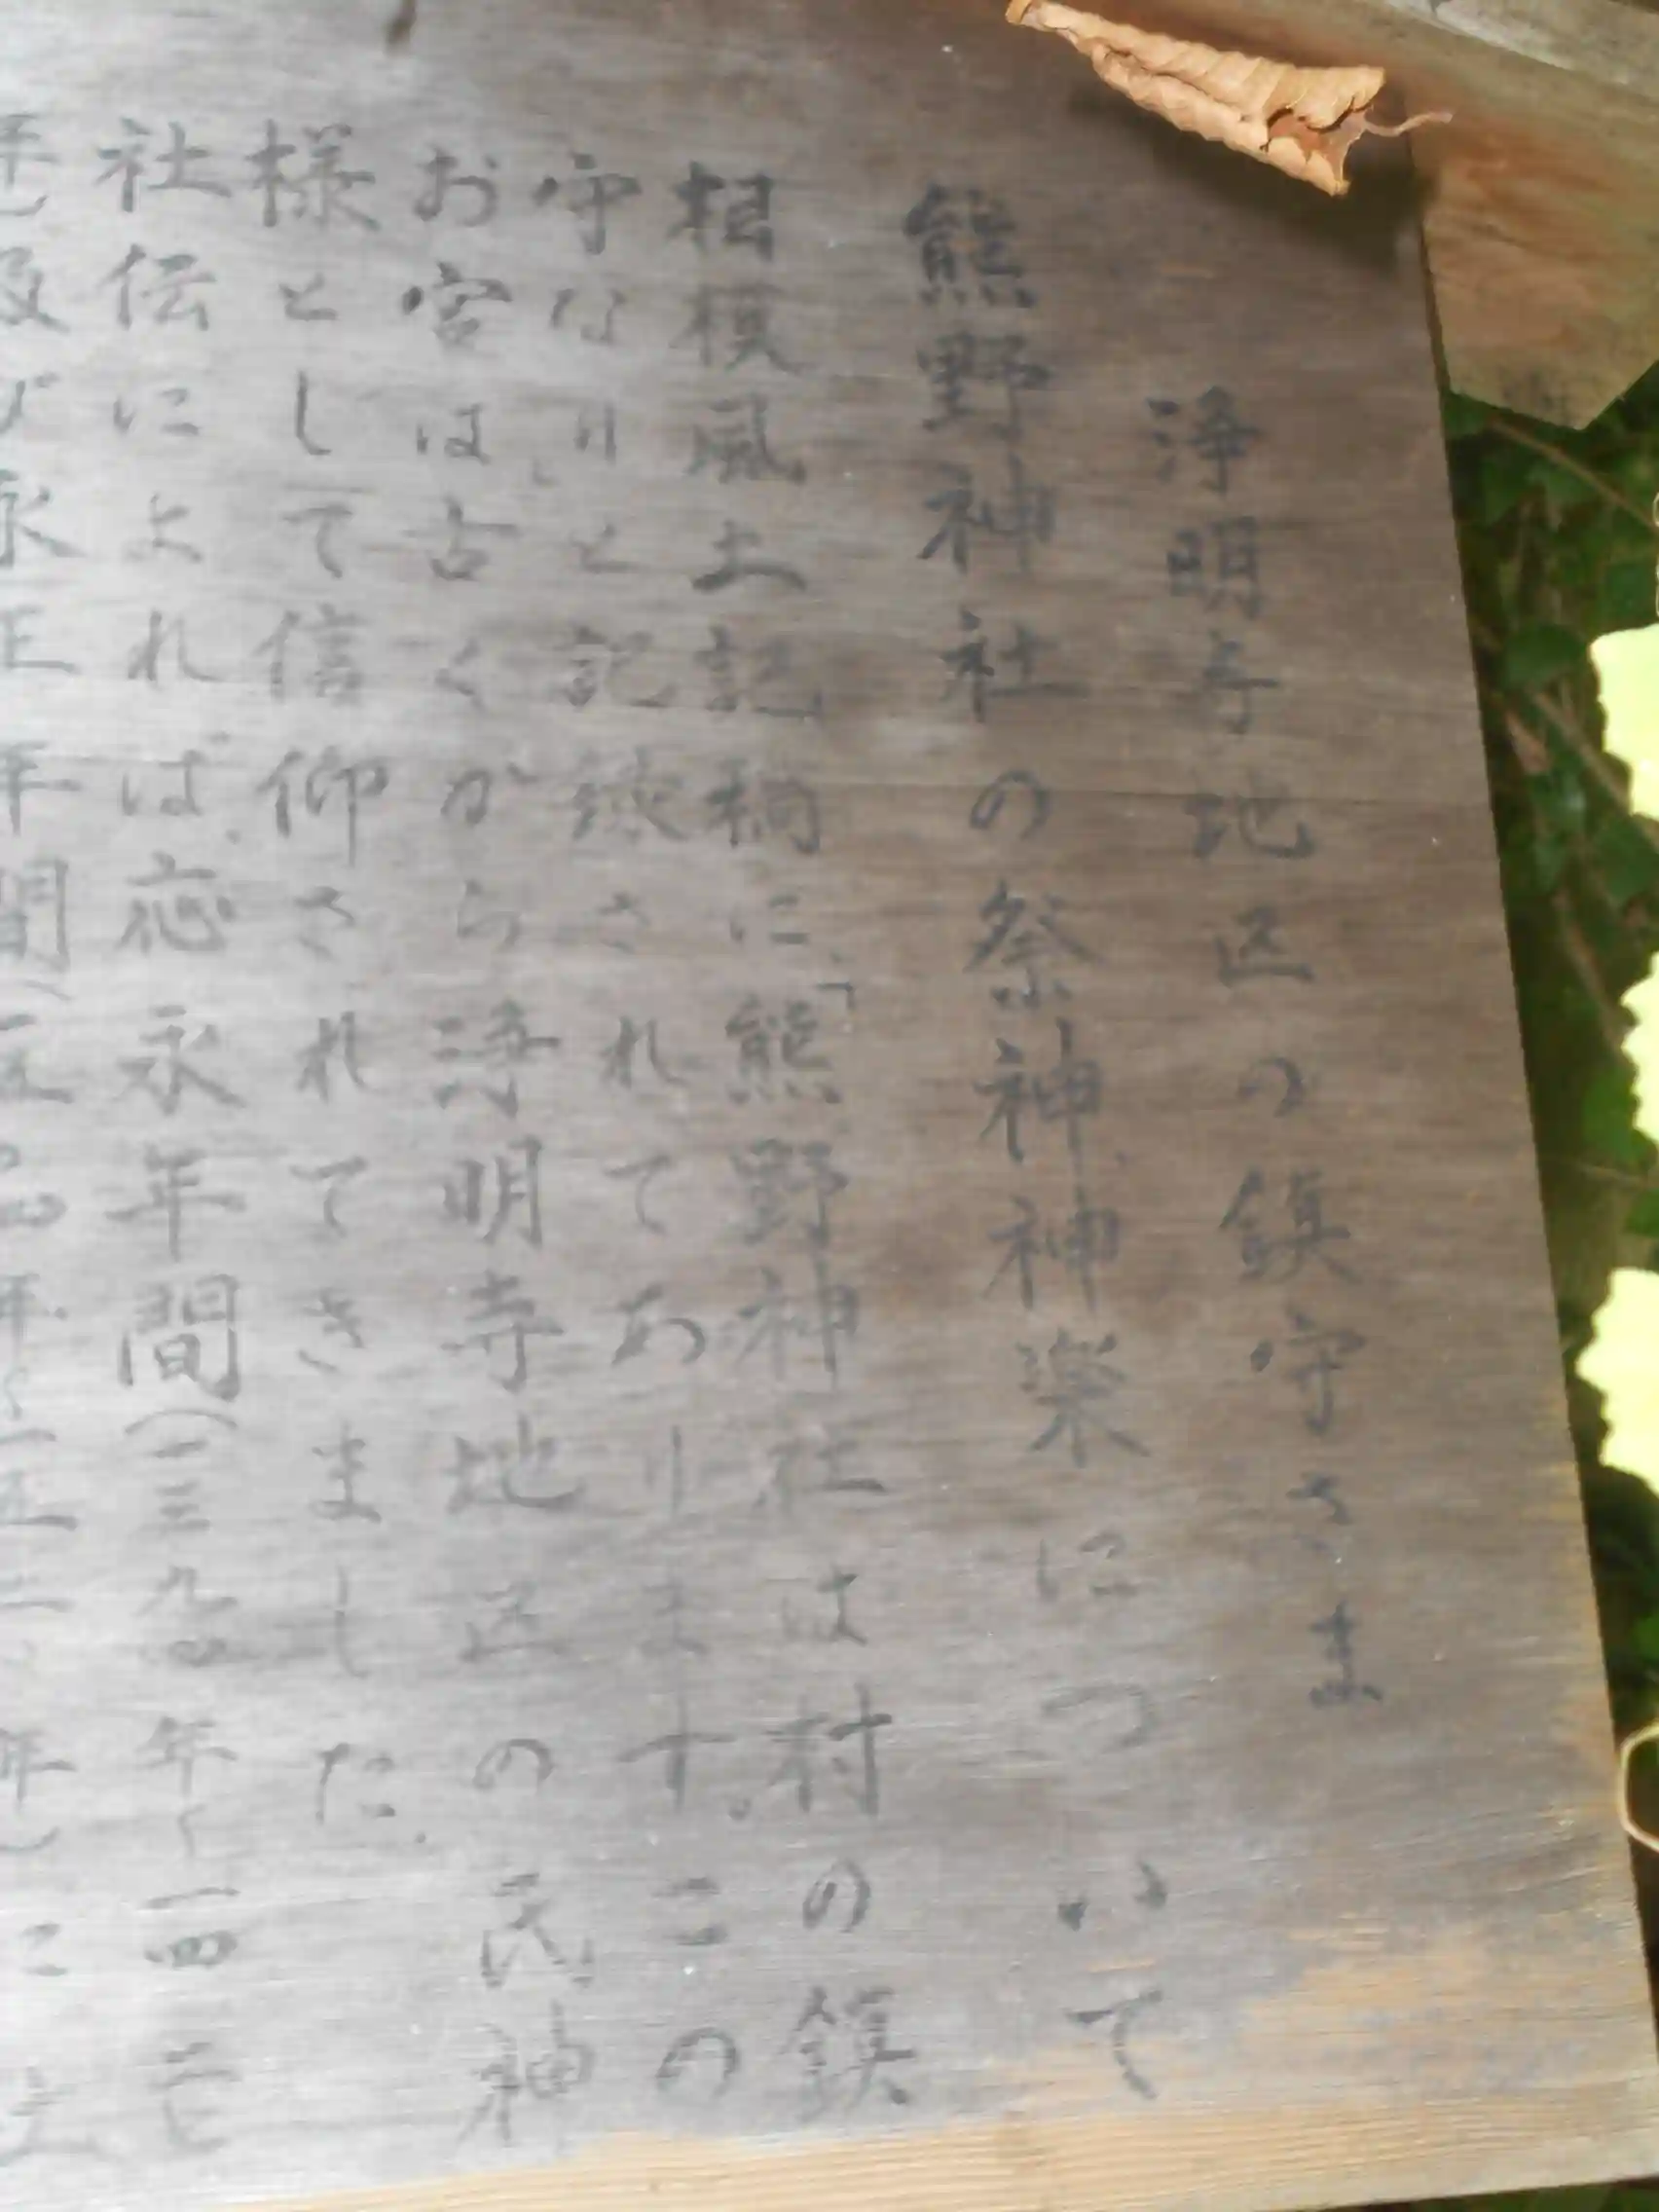 浄明寺地区の鎮守さま
熊野神社の祭神神楽について
相模風土記稿に「熊野神社は村の鎮
守なり」と記録されてあります。この
お宮は古くから浄明寺地区の氏神
様として信仰されてきました。
社伝によれば、応永年間(一三九四年〜一四二七
年)及び永正年間(一五〇四年〜一五二〇年)に